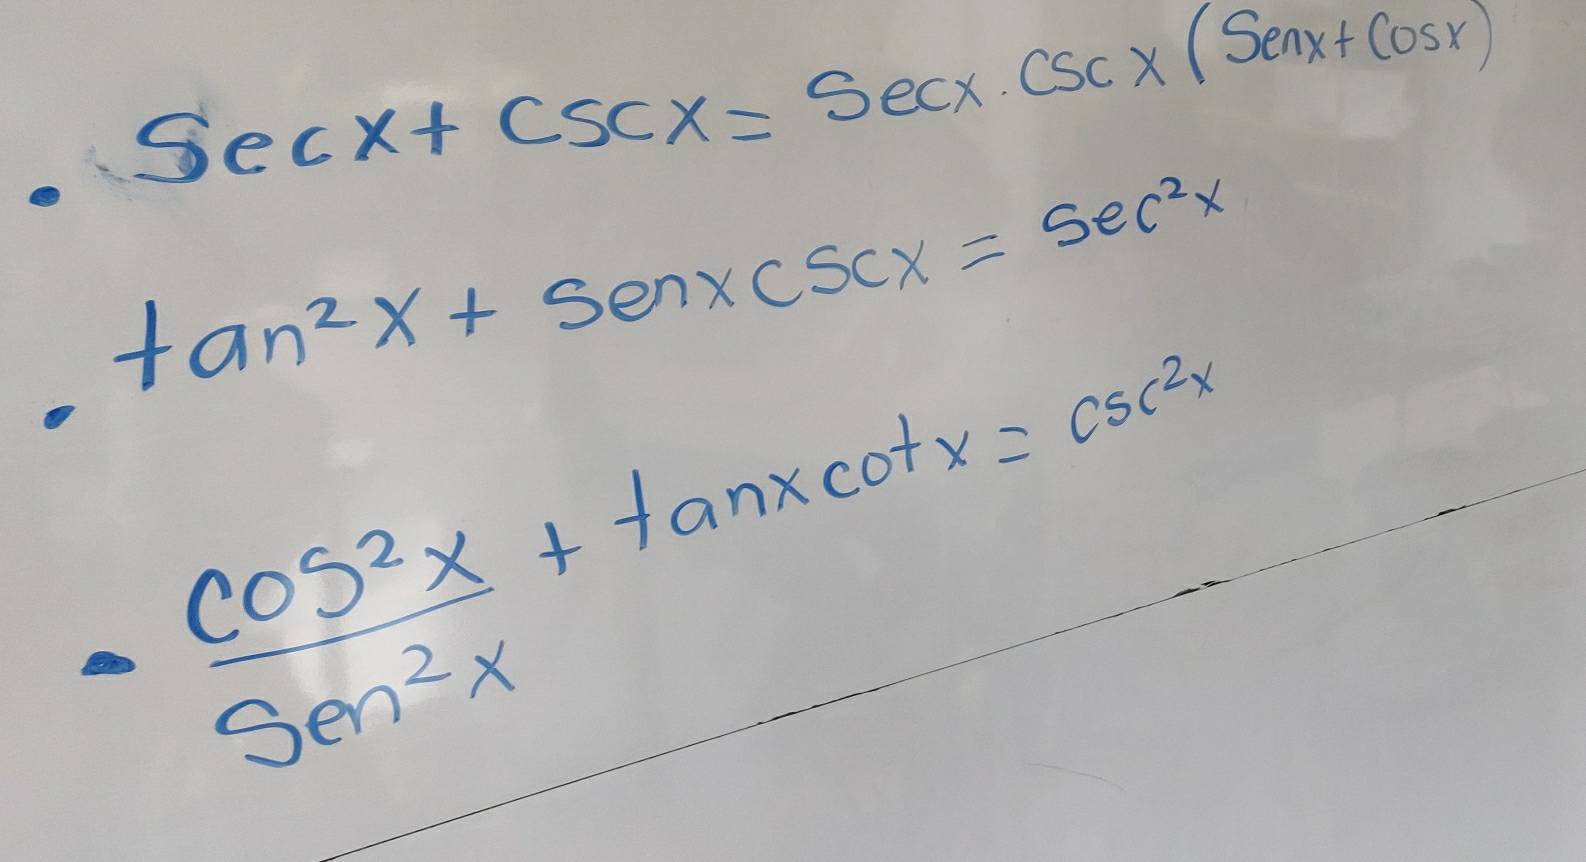 • Secx + cscx = Secx . Cscx (Senx + Cosx)
• tan²x + senxcscx = sec²x
• cos²x / Sen²x + tanxcotx = csc²x